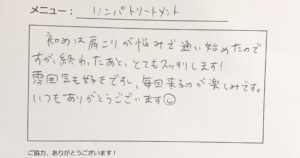 メニュー： リンパトリートメント
初めは肩こりが悩みで通い始めたので
すが、終わったあと、とてもスッキリします！
雰囲気も好きですし、毎回来るのが楽しみです。
いつもありがとうございます☺
ご協力、ありがとうございます！